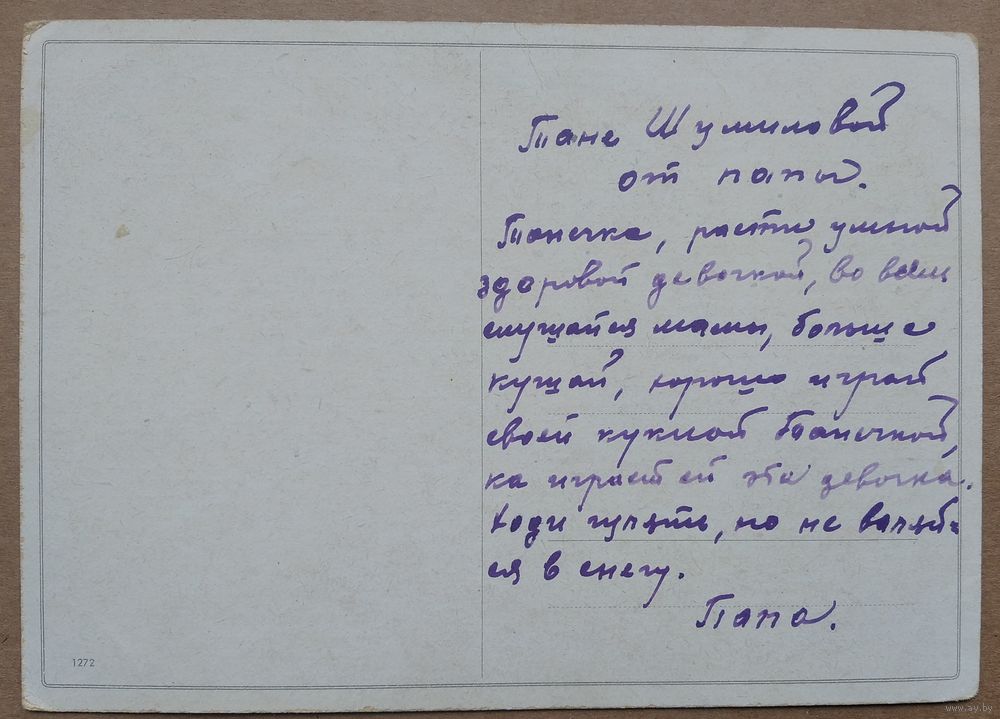 Тане Шумиловой
от папы.
Танечка, расти умной
здоровой девочкой, во всем
слушайся мамы, больше
кушай, хорошо играй
своей куклой Танечкой,
ка играет ей эта девочка.
Ходи гулять, но не валяй-
ся в снегу.
Папа.
1272
www.ay.by